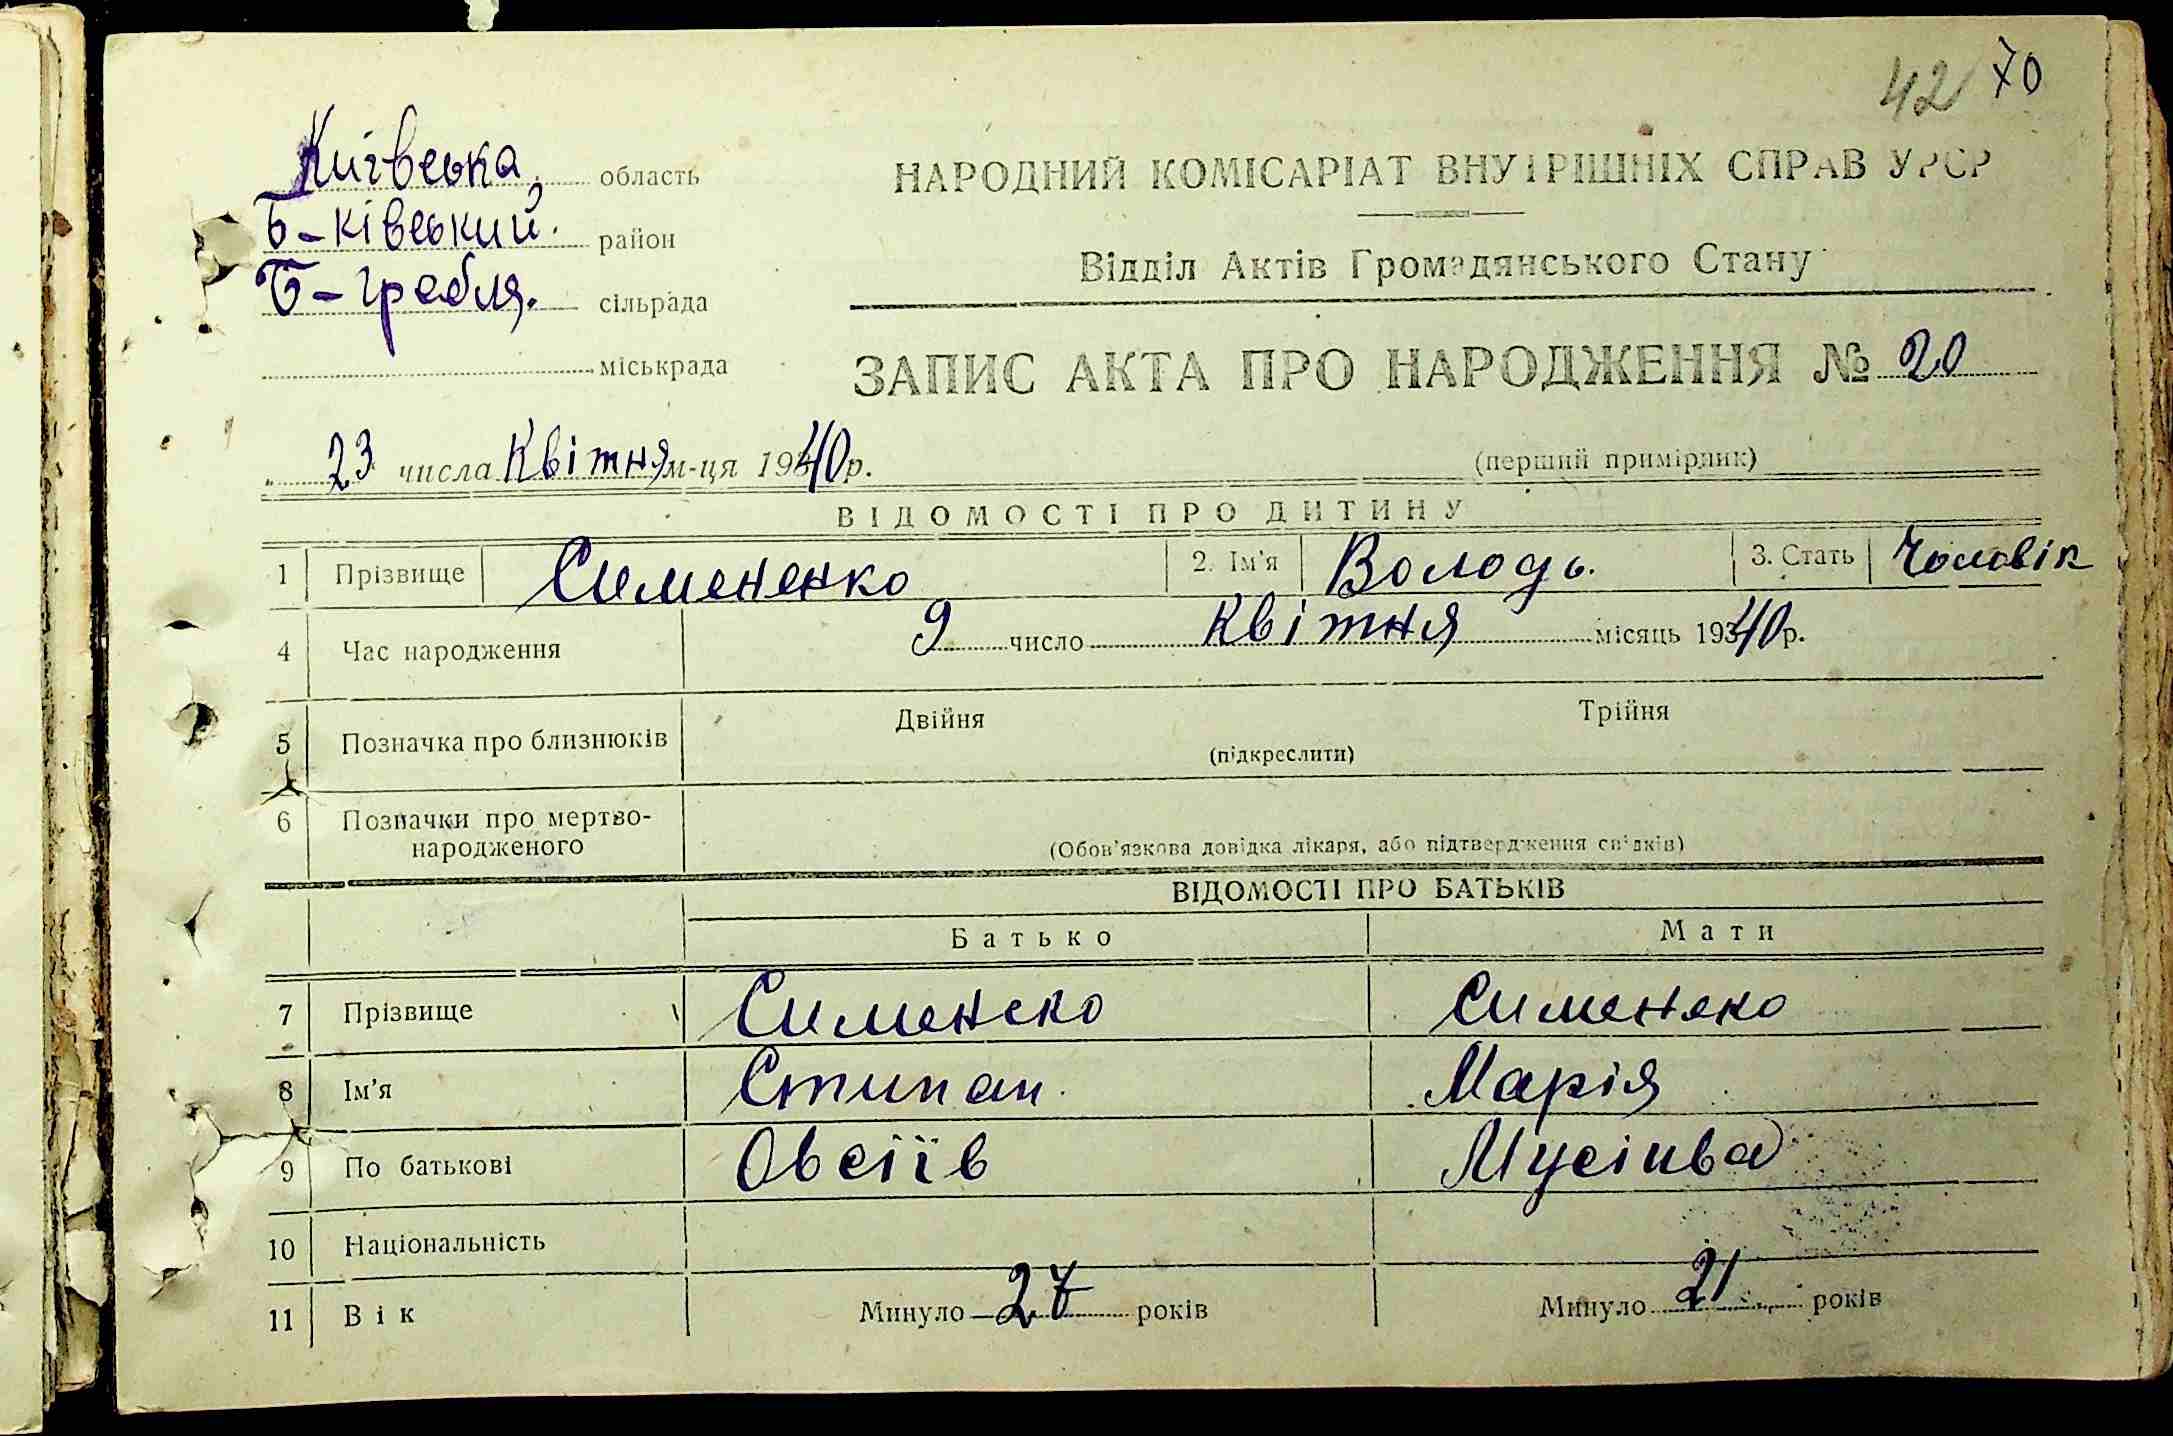 42 70
Київська область
Б-ківський. район
Б-гребля. сільрада
міськрада
НАРОДНИЙ КОМІСАРІАТ ВНУТРІШНІХ СПРАВ УРСР
Відділ Актів Громадянського Стану
ЗАПИС АКТА ПРО НАРОДЖЕННЯ № 20
„ 23 числа Квітня м-ця 19340р.
(перший примірник)
ВІДОМОСТІ ПРО ДИТИНУ
1 Прізвище Симененко 2. Ім'я Володь. 3. Стать Чоловік
4 Час народження 9 число Квітня місяць 19340р.
5 Позначка про близнюків Двійня Трійня
(підкреслити)
6 Позначки про мертво-
народженого
(Обов'язкова довідка лікаря, або підтвердження свідків)
ВІДОМОСТІ ПРО БАТЬКІВ
Батько Мати
7 Прізвище Сименеко Сименеко
8 Ім'я Стипан Марія
9 По батькові Овсіїв Мусіивa
10 Національність
11 Вік Минуло 27 років Минуло 21 років